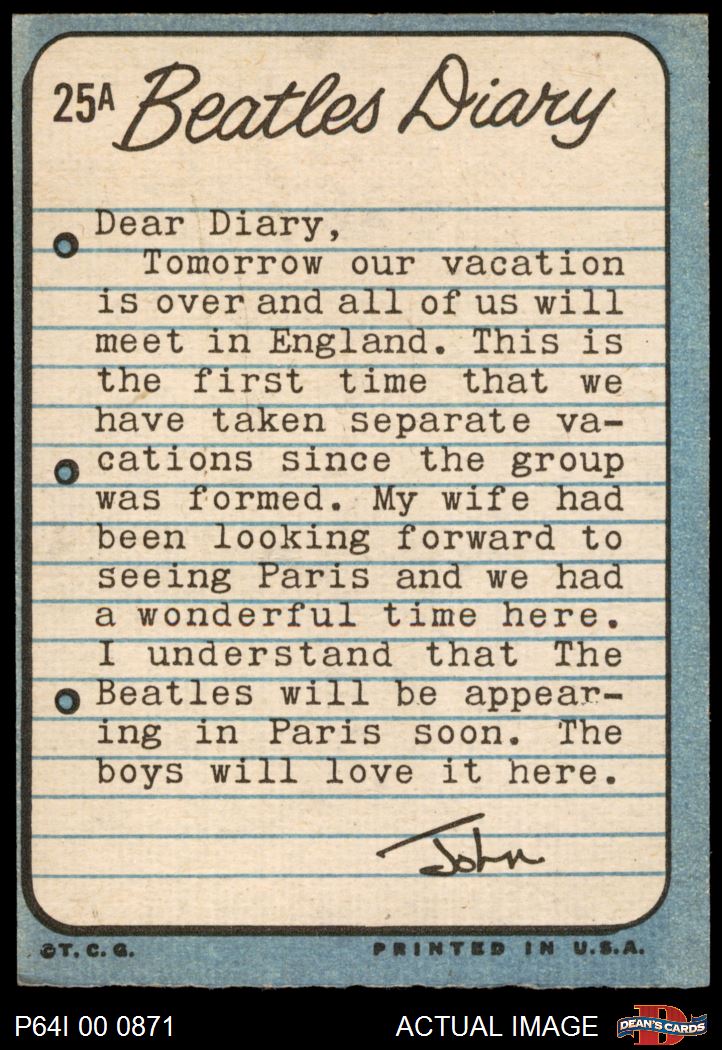 25A Beatles Diary
Dear Diary,
Tomorrow our vacation
is over and all of us will
meet in England. This is
the first time that we
have taken separate va-
cations since the group
was formed. My wife had
been looking forward to
seeing Paris and we had
a wonderful time here.
I understand that The
Beatles will be appear-
ing in Paris soon. The
boys will love it here.
John
©T.C.G. PRINTED IN U.S.A.
P64I 00 0871 ACTUAL IMAGE D DEAN'S CARDS